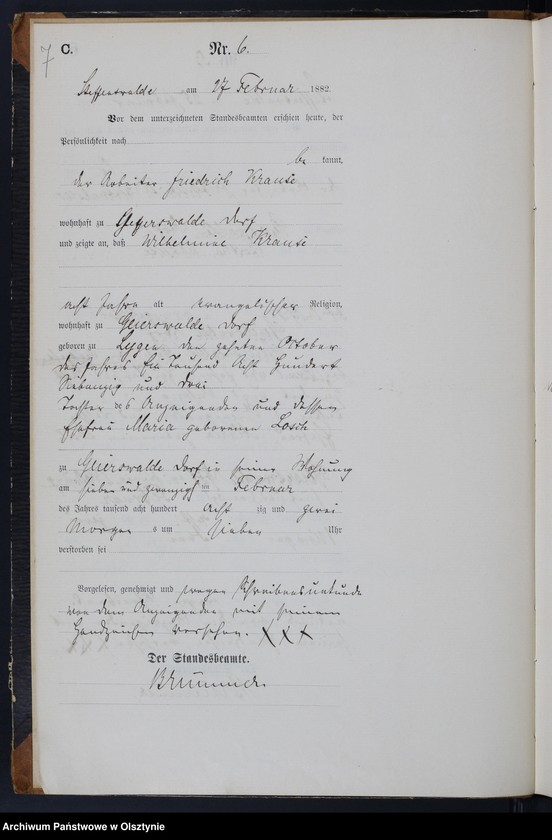 7
C. Nr. 6.
Steffenswalde am 27 Februar 1882.
Vor dem unterzeichneten Standesbeamten erschien heute, der
Persönlichkeit nach
be kannt,
der Arbeiter Friedrich Krause
wohnhaft zu Geierswalde Dorf
und zeigte an, daß Wilhelmine Krause
acht Jahre alt evangelischer Religion,
wohnhaft zu Geierswalde Dorf
geboren zu den zehnten October
des Jahres Ein Tausend Acht Hundert
Siebenzig und drei
Tochter des Anzeigenden und dessen
Ehefrau Maria geborenen Losch
zu Geierswalde Dorf in seiner Wohnung
am sieben und zwanzigsten Februar
des Jahres tausend acht hundert acht zig und zwei
Morgen s um sieben Uhr
verstorben sei
Vorgelesen, genehmigt und wegen Schreibensunkunde
von dem Anzeigenden mit seinem
Handzeichen versehen. XXX
Der Standesbeamte.
Archiwum Państwowe w Olsztynie